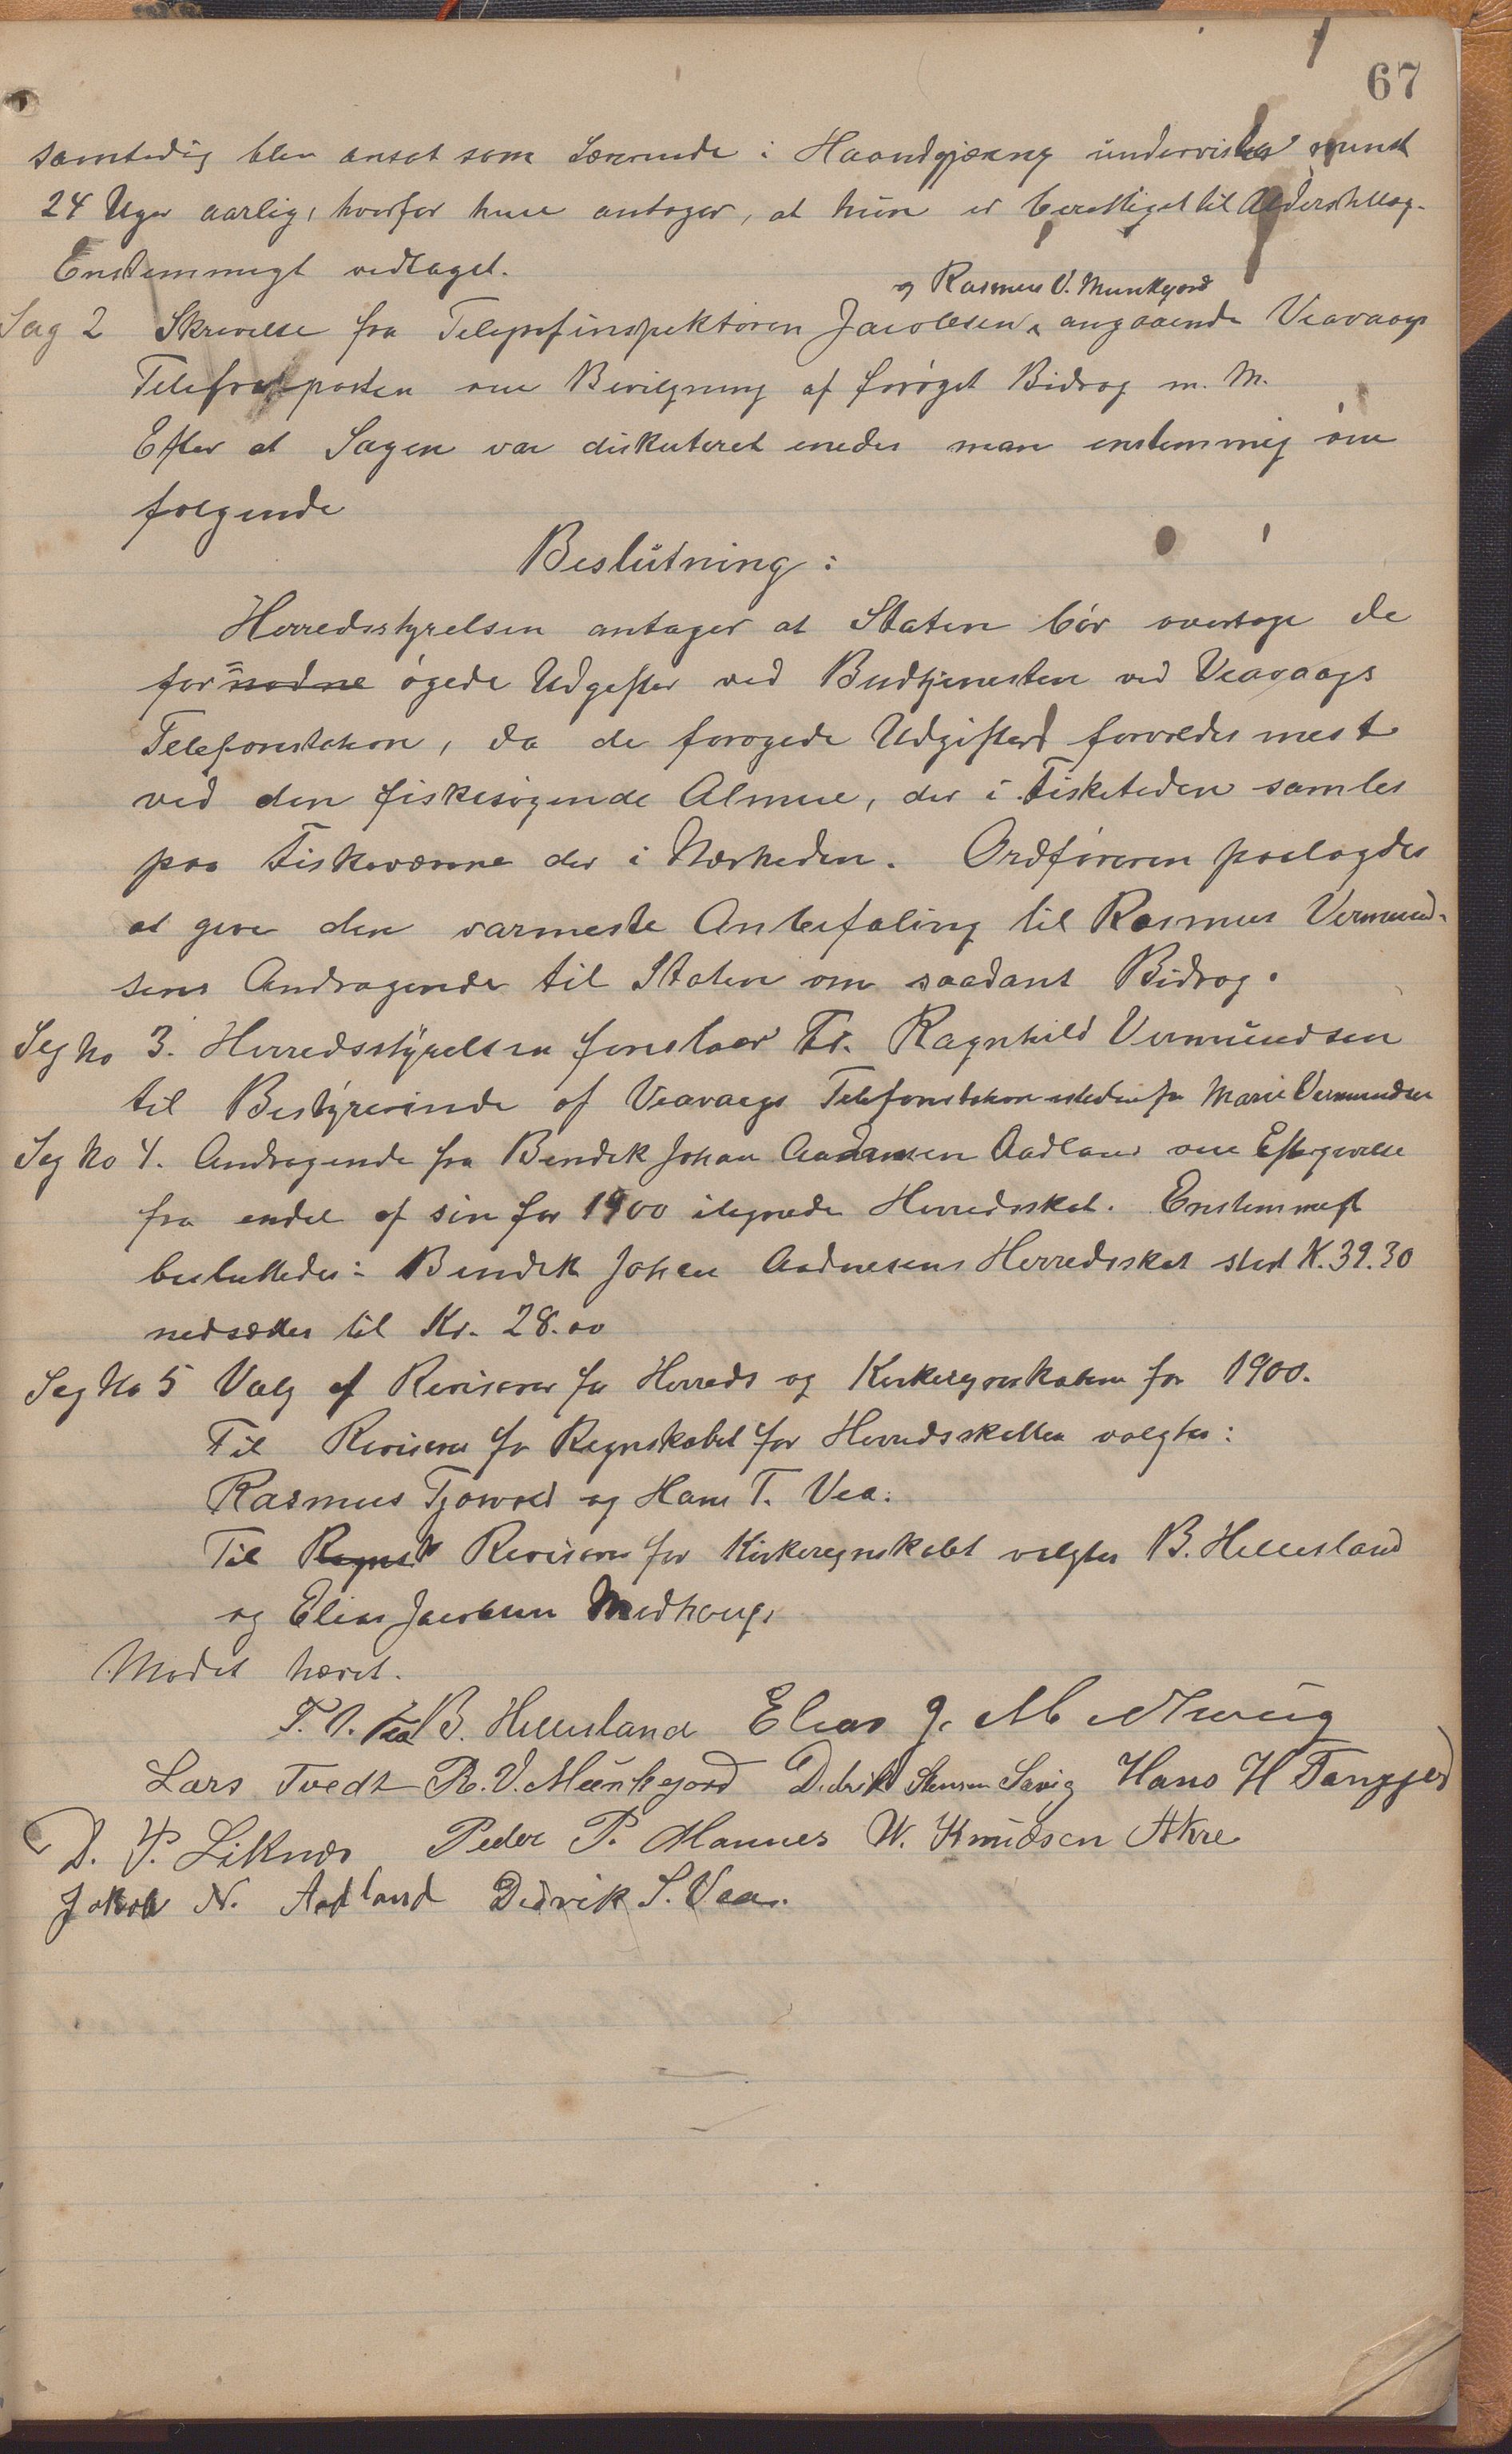 67
samtidig blev ansat som Lærerinde i Haandgjerning underviser mindst
24 Uger aarlig, hvorfor hun antager, at hun er berettiget til Alderstillæg.
Enstemmigt vedtaget.
og Rasmus V. Munkejord
Sag 2 Skrivelse fra Telegrafinspektøren Jacobsen angaaende Veavaags
om Bevilgning af forøget Bidrag m. M.
Efter at Sagen var diskuteret enedes man enstemmig om
følgende
Beslutning:
Herredsstyrelsen antager at Staten bør overtage de
for nødne øgede Udgifter ved Budtjenesten ved Veavaags
Telefonstation, da de forøgede Udgifter forvoldes mest
ved den fiskesøgende Almue, der i Fisketiden samles
paa Fiskeværene der i Nærheden. Ordføreren paalagdes
at give den varmeste Anbefaling til Rasmus Vermund-
sens Andragende til Staten om saadant Bidrag.
Sag No 3. Herredsstyrelsen foreslaar Fr. Ragnhild Vermundsen
til Bestyrerinde af Veavaags Telefonstation istedenfor Marie Vermundsen
Sag No 4. Andragende fra Bendik Johan Aadnesen Aadland om Eftergivelse
fra endel af sin for 1900 ilignede Herredsskat. Enstemmigt
besluttedes: Bendik Johan Aadnesens Herredsskat stor K. 39.30
nedsættes til Kr. 28.00
Sag No 5 Valg af Revisorer for Herreds og Kirkeregnskaberne for 1900.
Til Revisorer for Regnskabet for Herredsskatten valgtes:
Rasmus Tjøsvold og Hans T. Vea.
Til Regnsk Revisorer for Kirkeregnskabet valgtes B. Hellesland
og Elias Jacobsen Medhaug.
Mødet hævet.
T. V. Vea B. Hellesland Elias J. Medhaug
Lars Tvedt R. V. Munkejord Didrik Stensen Sævig Hans H
D. P. Liknes Peder P. Mannes W. Knudsen Aakre
Jakob N. Aadland Didrik S. Vea.